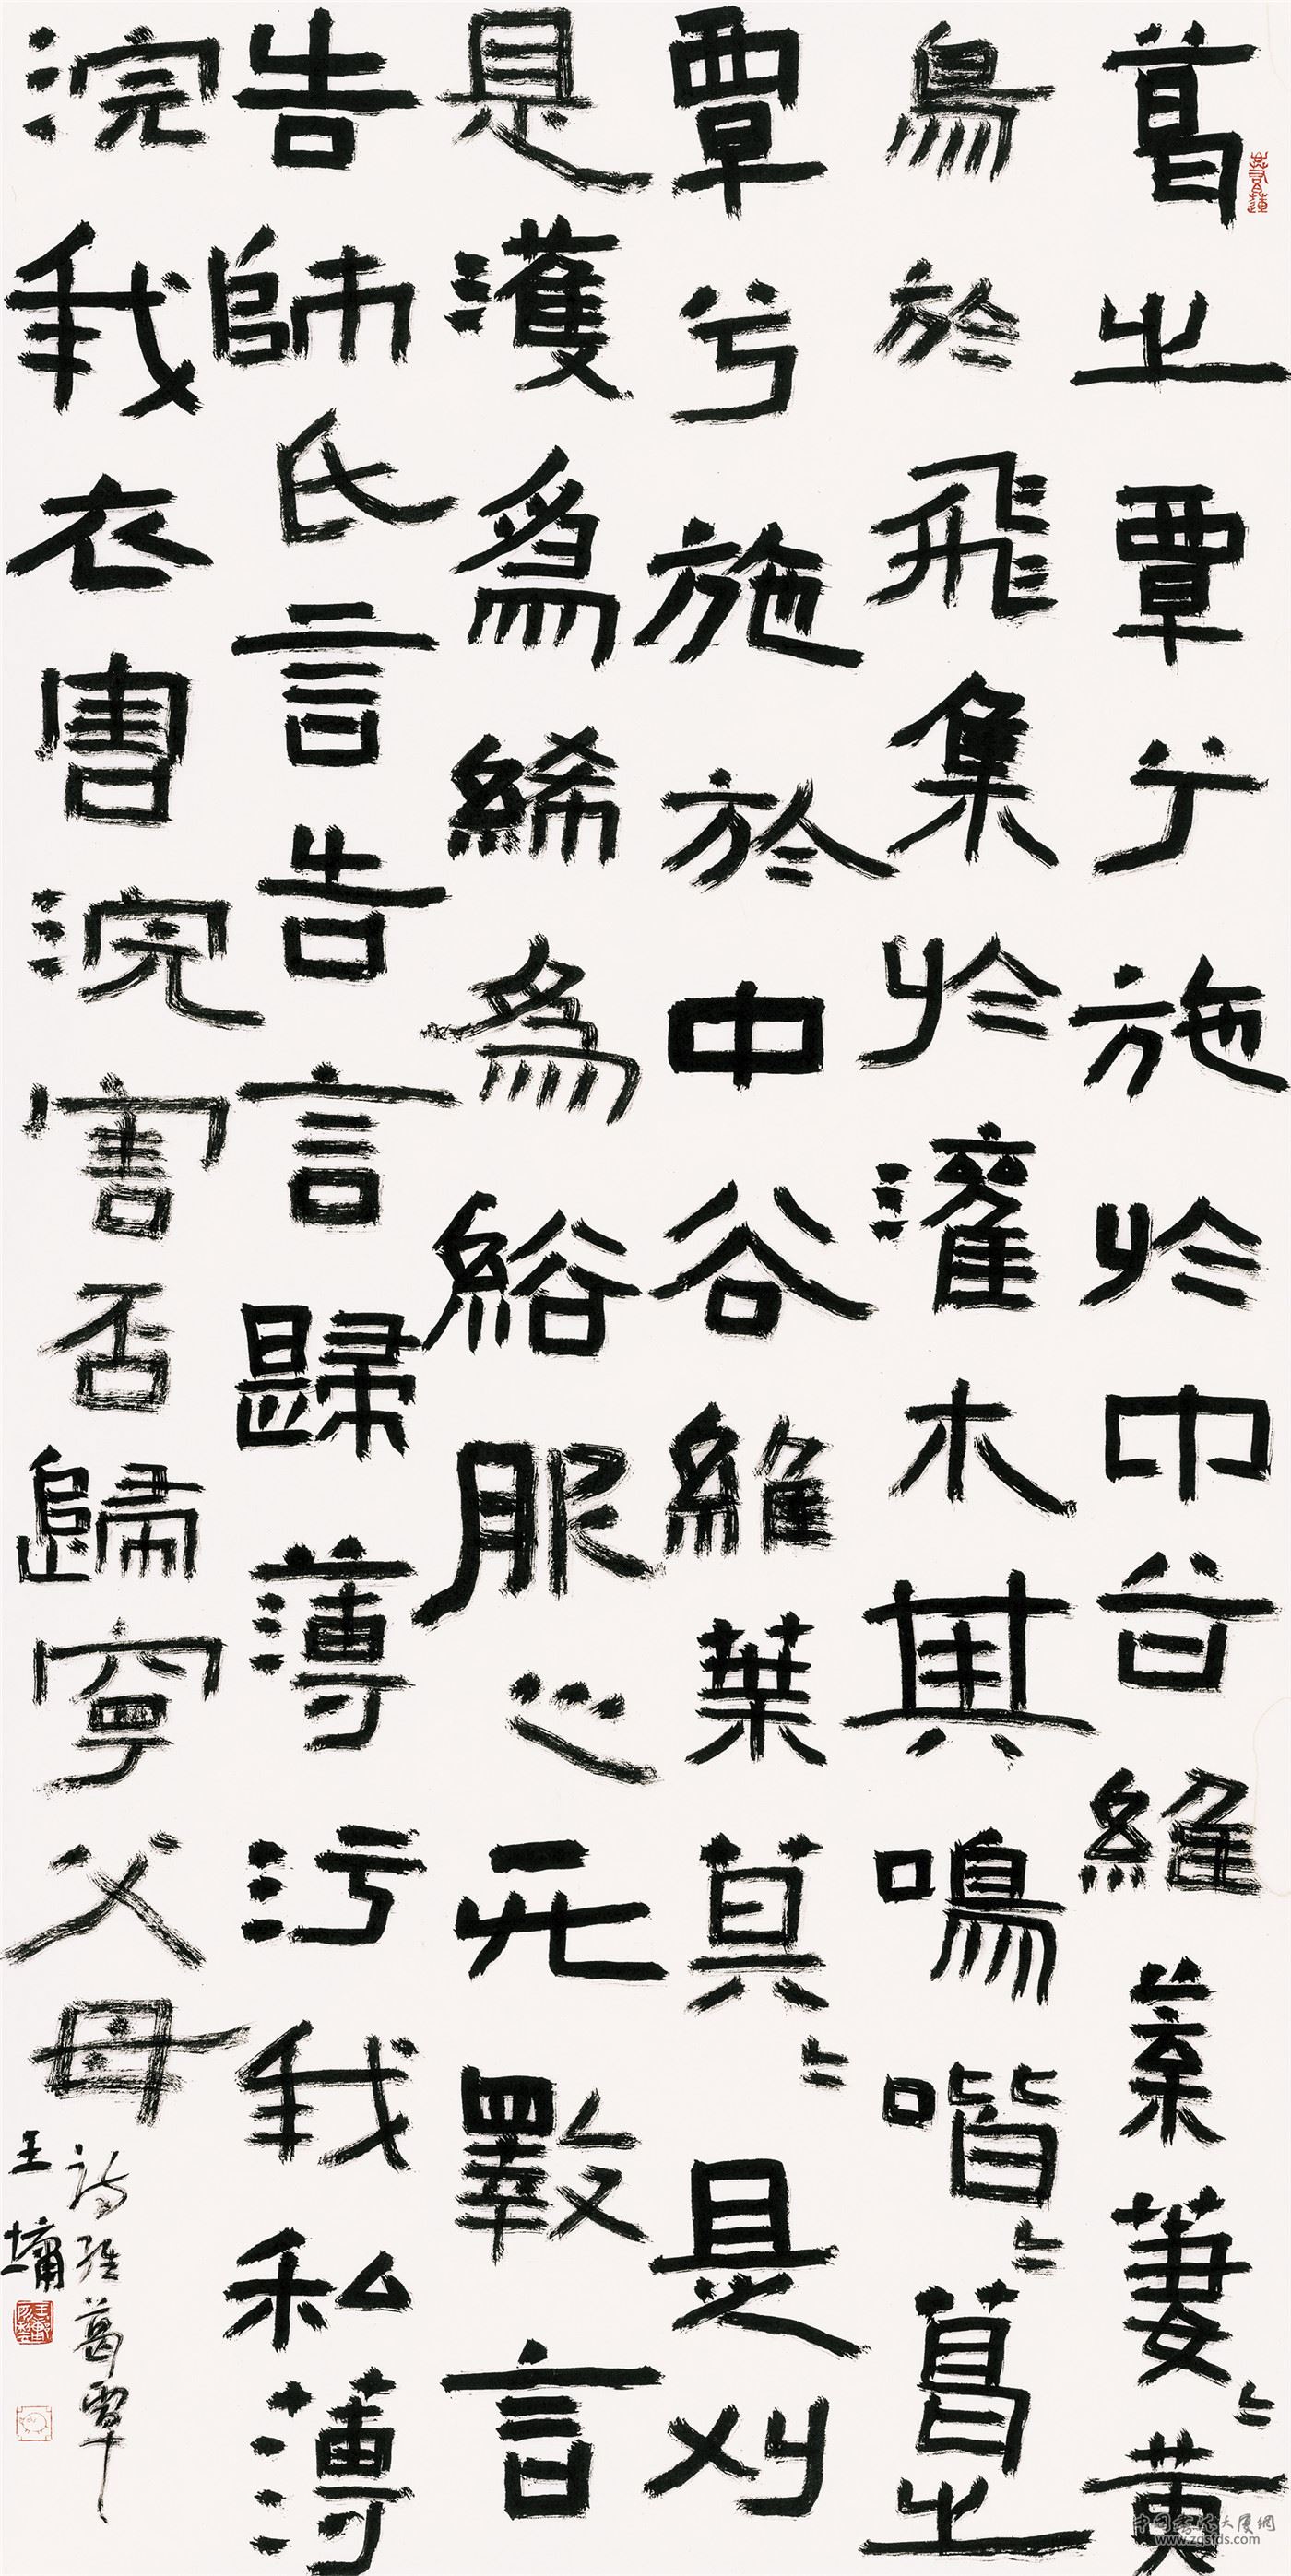 葛之覃兮施於中谷維葉萋〻黃
鳥於飛集於灌木其鳴喈〻葛之
覃兮施於中谷維葉莫〻是刈
是濩為絺為綌服之无斁言
告師氏言告言歸薄污我私薄
浣我衣害浣害否歸寧父母
詩經葛覃
王墉
www.zgsfds.com